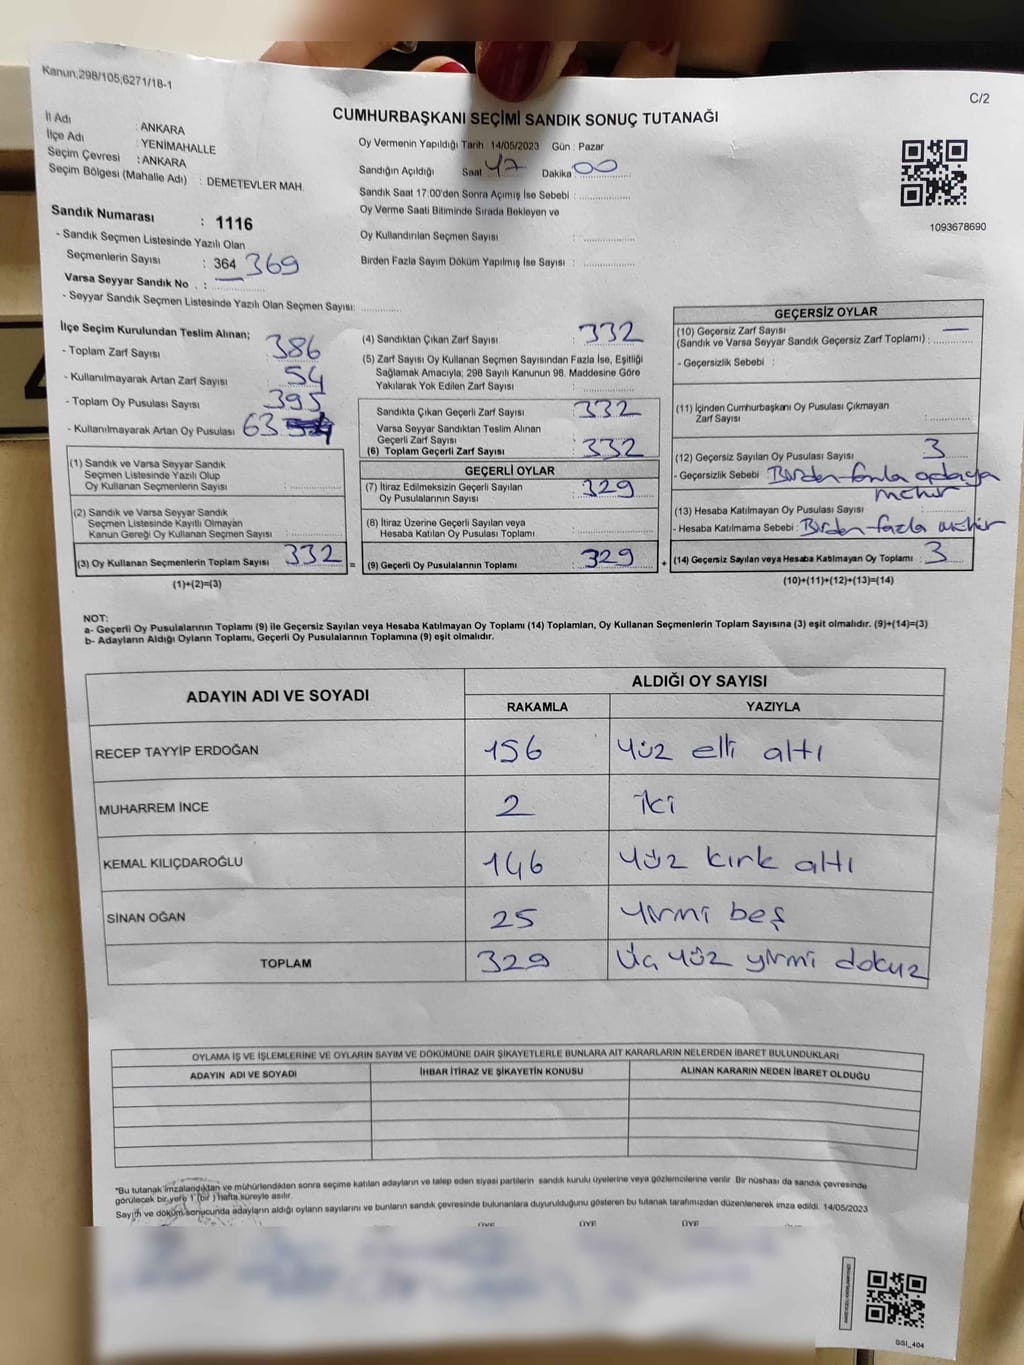 Kanun,298/105,6271/18-1
C/2
CUMHURBAŞKANI SEÇİMİ SANDIK SONUÇ TUTANAĞI
İl Adı : ANKARA
İlçe Adı : YENİMAHALLE
Seçim Çevresi : ANKARA
Seçim Bölgesi (Mahalle Adı) : DEMETEVLER MAH.
Sandık Numarası : 1116
- Sandık Seçmen Listesinde Yazılı Olan
Seçmenlerin Sayısı : 364 369
Varsa Seyyar Sandık No . : ..............
- Seyyar Sandık Seçmen Listesinde Yazılı Olan Seçmen Sayısı: ............
Oy Vermenin Yapıldığı Tarih 14/05/2023 Gün : Pazar
Sandığın Açıldığı Saat 17 Dakika 00
Sandık Saat 17.00'den Sonra Açımış İse Sebebi : ..............
Oy Verme Saati Bitiminde Sırada Bekleyen ve
Oy Kullandırılan Seçmen Sayısı : ..............
Birden Fazla Sayım Döküm Yapılmış İse Sayısı : ..............
1093678690
İlçe Seçim Kurulundan Teslim Alınan;
- Toplam Zarf Sayısı : 386
- Kullanılmayarak Artan Zarf Sayısı : 54
- Toplam Oy Pusulası Sayısı : 395
- Kullanılmayarak Artan Oy Pusulası 63
(1) Sandık ve Varsa Seyyar Sandık
Seçmen Listesinde Yazılı Olup
Oy Kullanan Seçmenlerin Sayısı : ..............
(2) Sandık ve Varsa Seyyar Sandık
Seçmen Listesinde Kayıtlı Olmayan
Kanun Gereği Oy Kullanan Seçmen Sayısı : ..............
(3) Oy Kullanan Seçmenlerin Toplam Sayısı : 332 =
(1)+(2)=(3)
(4) Sandıktan Çıkan Zarf Sayısı : 332
(5) Zarf Sayısı Oy Kullanan Seçmen Sayısından Fazla İse, Eşitliği
Sağlamak Amacıyla, 298 Sayılı Kanunun 98. Maddesine Göre
Yakılarak Yok Edilen Zarf Sayısı : ..............
Sandıkta Çıkan Geçerli Zarf Sayısı : 332
Varsa Seyyar Sandıktan Teslim Alınan
Geçerli Zarf Sayısı : ..............
(6) Toplam Geçerli Zarf Sayısı : 332
GEÇERLİ OYLAR
(7) İtiraz Edilmeksizin Geçerli Sayılan
Oy Pusulalarının Sayısı : 329
(8) İtiraz Üzerine Geçerli Sayılan veya
Hesaba Katılan Oy Pusulası Toplamı : ..............
(9) Geçerli Oy Pusulalarının Toplamı : 329 +
GEÇERSİZ OYLAR
(10) Geçersiz Zarf Sayısı —
(Sandık ve Varsa Seyyar Sandık Geçersiz Zarf Toplamı) : ..............
- Geçersizlik Sebebi :
(11) İçinden Cumhurbaşkanı Oy Pusulası Çıkmayan
Zarf Sayısı : ..............
(12) Geçersiz Sayılan Oy Pusulası Sayısı : 3
- Geçersizlik Sebebi : Birden fazla adaya
mühür
(13) Hesaba Katılmayan Oy Pusulası Sayısı : ..............
- Hesaba Katılmama Sebebi : Birden fazla mühür
(14) Geçersiz Sayılan veya Hesaba Katılmayan Oy Toplamı : 3
(10)+(11)+(12)+(13)=(14)
NOT:
a- Geçerli Oy Pusulalarının Toplamı (9) ile Geçersiz Sayılan veya Hesaba Katılmayan Oy Toplamı (14) Toplamları, Oy Kullanan Seçmenlerin Toplam Sayısına (3) eşit olmalıdır. (9)+(14)=(3)
b- Adayların Aldığı Oyların Toplamı, Geçerli Oy Pusulalarının Toplamına (9) eşit olmalıdır.
ADAYIN ADI VE SOYADI
ALDIĞI OY SAYISI
RAKAMLA YAZIYLA
RECEP TAYYİP ERDOĞAN 156 Yüz elli altı
MUHARREM İNCE 2 iki
KEMAL KILIÇDAROĞLU 146 Yüz kırk altı
SİNAN OĞAN 25 Yirmi beş
TOPLAM 329 Üç yüz yirmi dokuz
OYLAMA İŞ VE İŞLEMLERİNE VE OYLARIN SAYIM VE DÖKÜMÜNE DAİR ŞİKAYETLERLE BUNLARA AİT KARARLARIN NELERDEN İBARET BULUNDUKLARI
ADAYIN ADI VE SOYADI İHBAR İTİRAZ VE ŞİKAYETİN KONUSU ALINAN KARARIN NEDEN İBARET OLDUĞU
*Bu tutanak imzalandıktan ve mühürlendikten sonra seçime katılan adayların ve talep eden siyasi partilerin sandık kurulu üyelerine veya gözlemcilerine verilir .Bir nüshası da sandık çevresinde
görülecek bir yere 1 (bir ) hafta süreyle asılır.
Sayım ve döküm sonucunda adayların aldığı oyların sayılarını ve bunların sandık çevresinde bulunanlara duyurulduğunu gösteren bu tutanak tarafımızdan düzenlenerek imza edildi. 14/05/2023
ÜYE ÜYE ÜYE
GSI_404